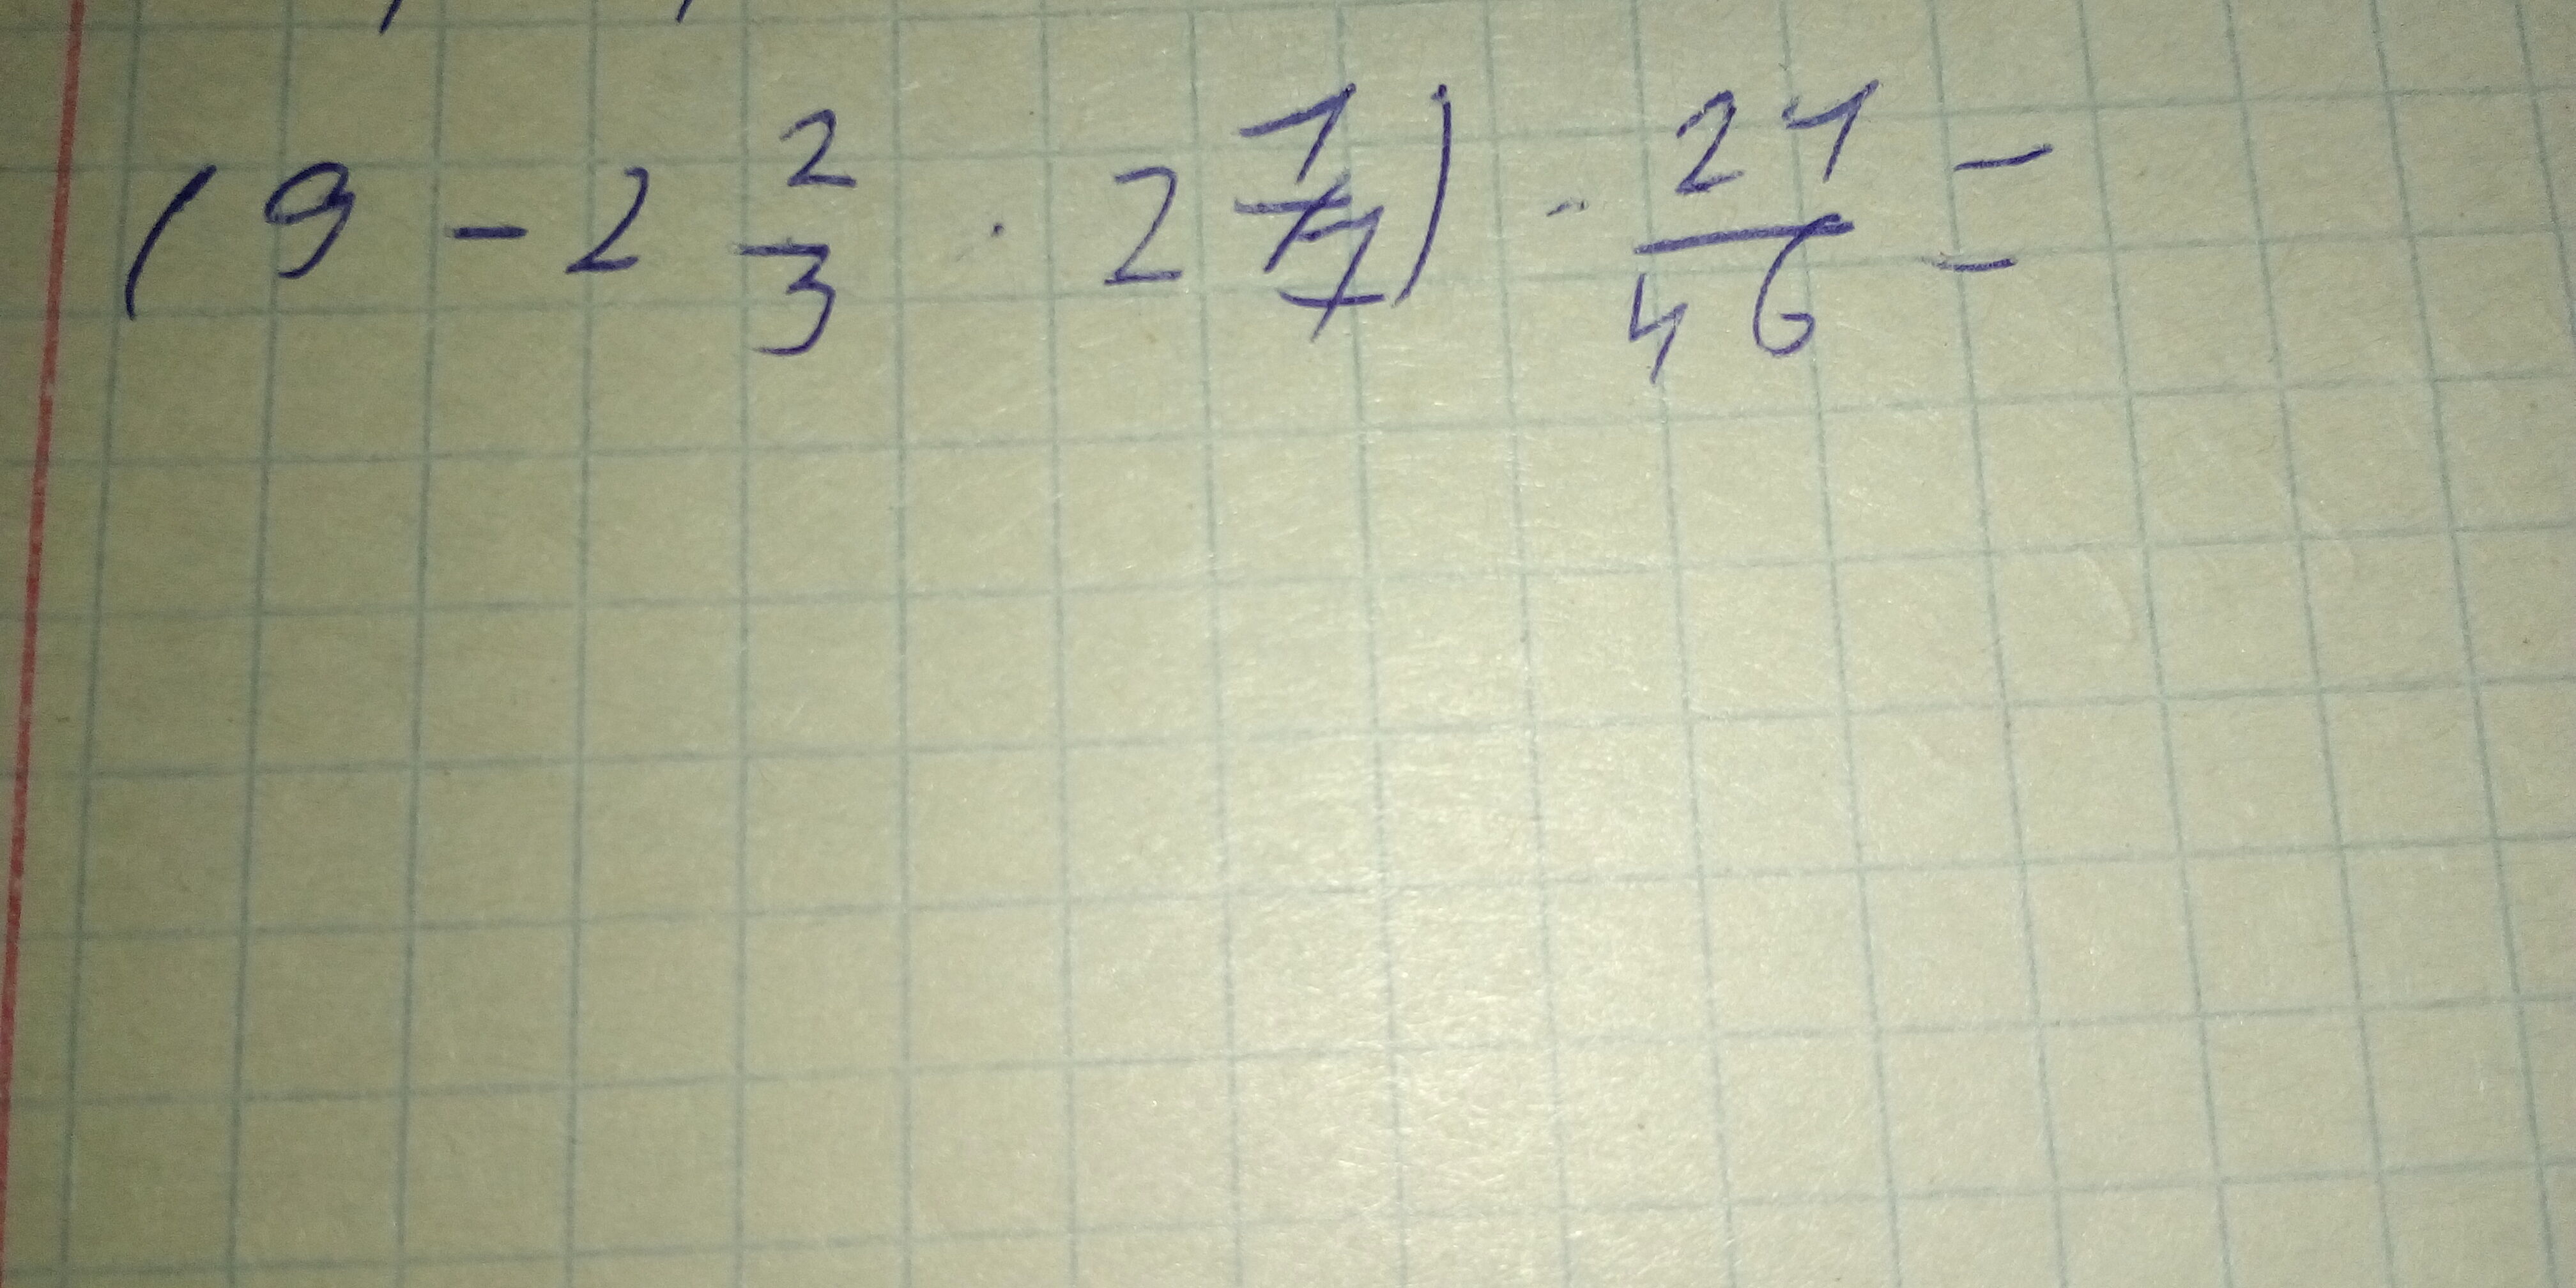 (9 - 2 2/3 · 2 1/7) · 21/46 =